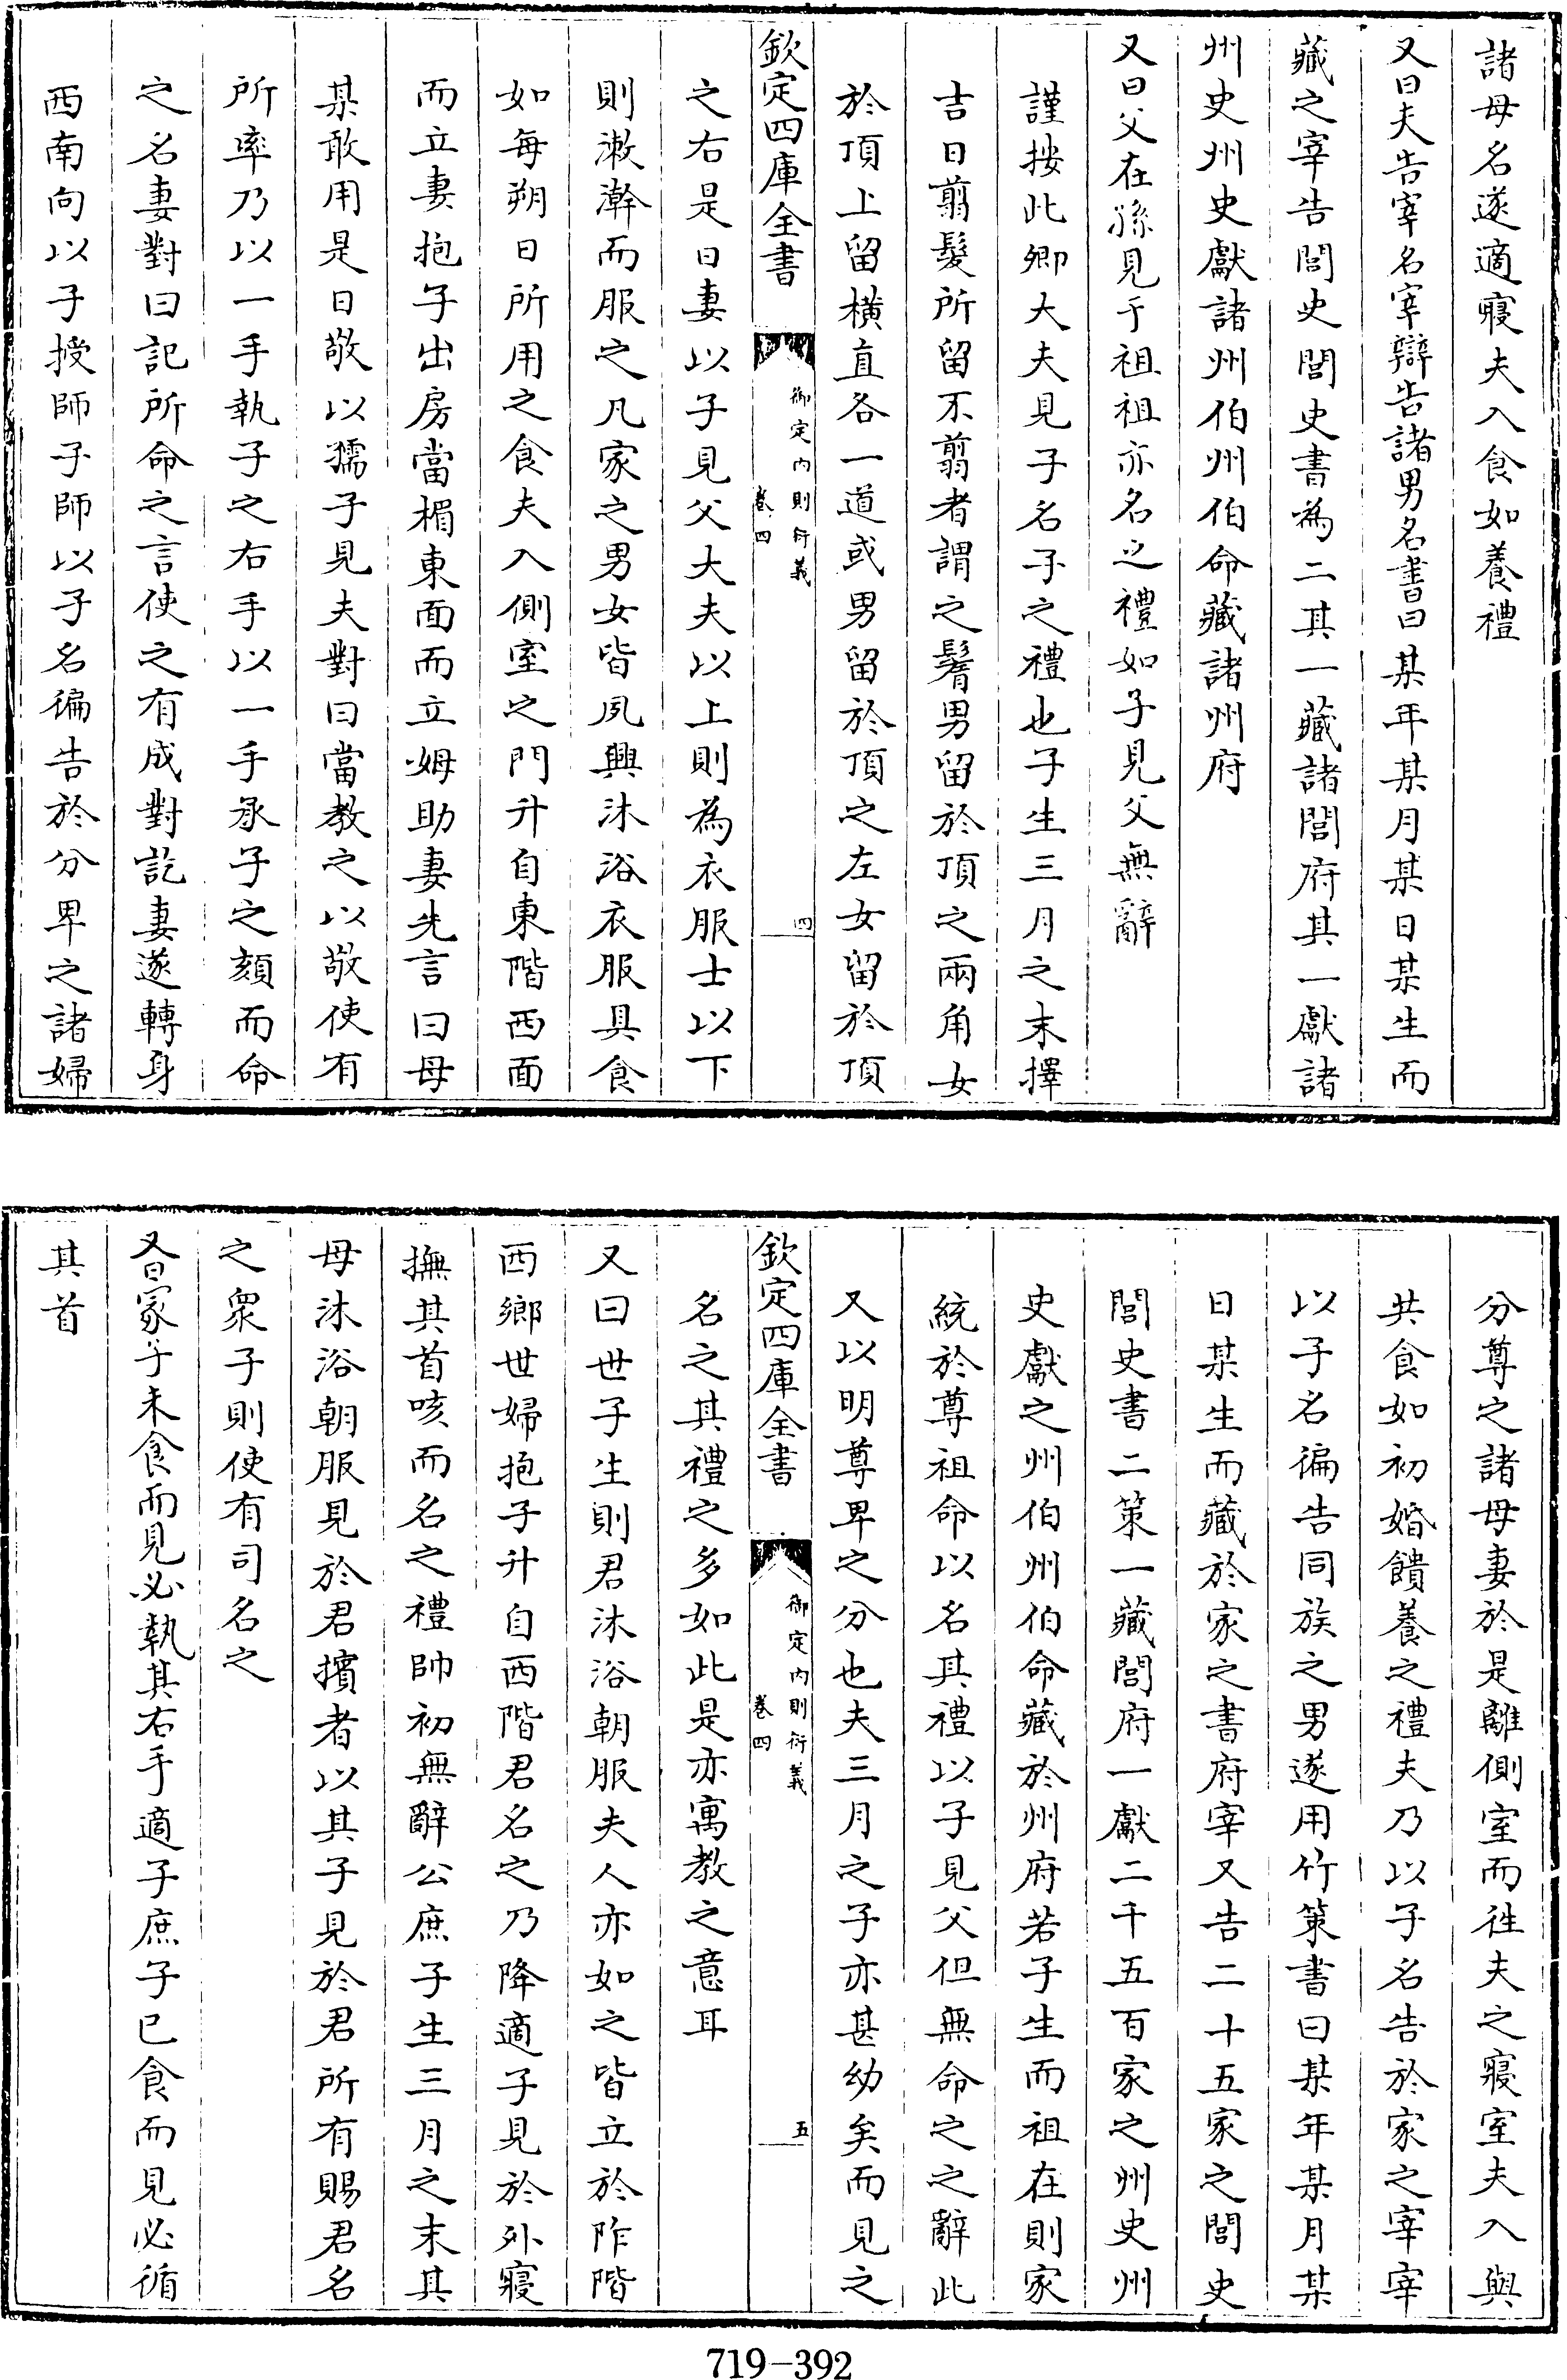 諸母名遂適寢夫入食如養禮
又曰夫告宰名宰辯告諸男名書曰某年某月某日某生而
藏之宰告閭史閭史書為二其一藏諸閭府其一獻諸
州史州史獻諸州伯州伯命藏諸州府
又曰父在孫見于祖祖亦名之禮如子見父無辭
謹按此卿大夫見子名子之禮也子生三月之末擇
吉日翦髮所留不翦者謂之鬌男留於頂之兩角女
於頂上留橫直各一道或男留於頂之左女留於頂
欽定四庫全書
御定內則衍義
卷四
四
之右是日妻以子見父大夫以上則為衣服士以下
則漱澣而服之凡家之男女皆夙興沐浴衣服具食
如每朔日所用之食夫入側室之門升自東階西面
而立妻抱子出房當楣東面而立姆助妻先言曰母
某敢用是日敬以孺子見夫對曰當教之以敬使有
所率乃以一手執子之右手以一手承子之頦而命
之名妻對曰記所命之言使之有成對訖妻遂轉身
西南向以子授師子師以子名徧告於分卑之諸婦
分尊之諸母妻於是離側室而往夫之寢室夫入與
共食如初婚饋養之禮夫乃以子名告於家之宰宰
以子名徧告同族之男遂用竹策書曰某年某月某
日某生而藏於家之書府宰又告二十五家之閭史
閭史書二策一藏閭府一獻二千五百家之州史州
史獻之州伯州伯命藏於州府若子生而祖在則家
統於尊祖命以名其禮以子見父但無命之之辭此
又以明尊卑之分也夫三月之子亦甚幼矣而見之
欽定四庫全書
御定內則衍義
卷四
五
名之其禮之多如此是亦寓教之意耳
又曰世子生則君沐浴朝服夫人亦如之皆立於阼階
西鄉世婦抱子升自西階君名之乃降適子見於外寢
撫其首咳而名之禮帥初無辭公庶子生三月之末其
母沐浴朝服見於君擯者以其子見於君所有賜君名
之衆子則使有司名之
又曰冢子未食而見必執其右手適子庶子已食而見必循
其首
719-392